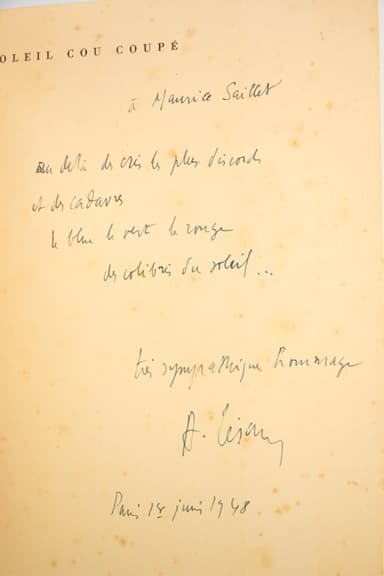 OLEIL COU COUPÉ
à Maurice Saillet
au delà des cris les plus discords
et des cadavres
le bleu le vert le rouge
des colibris du soleil...
très sympathique hommage
A. Césaire
Paris 1er juin 1948